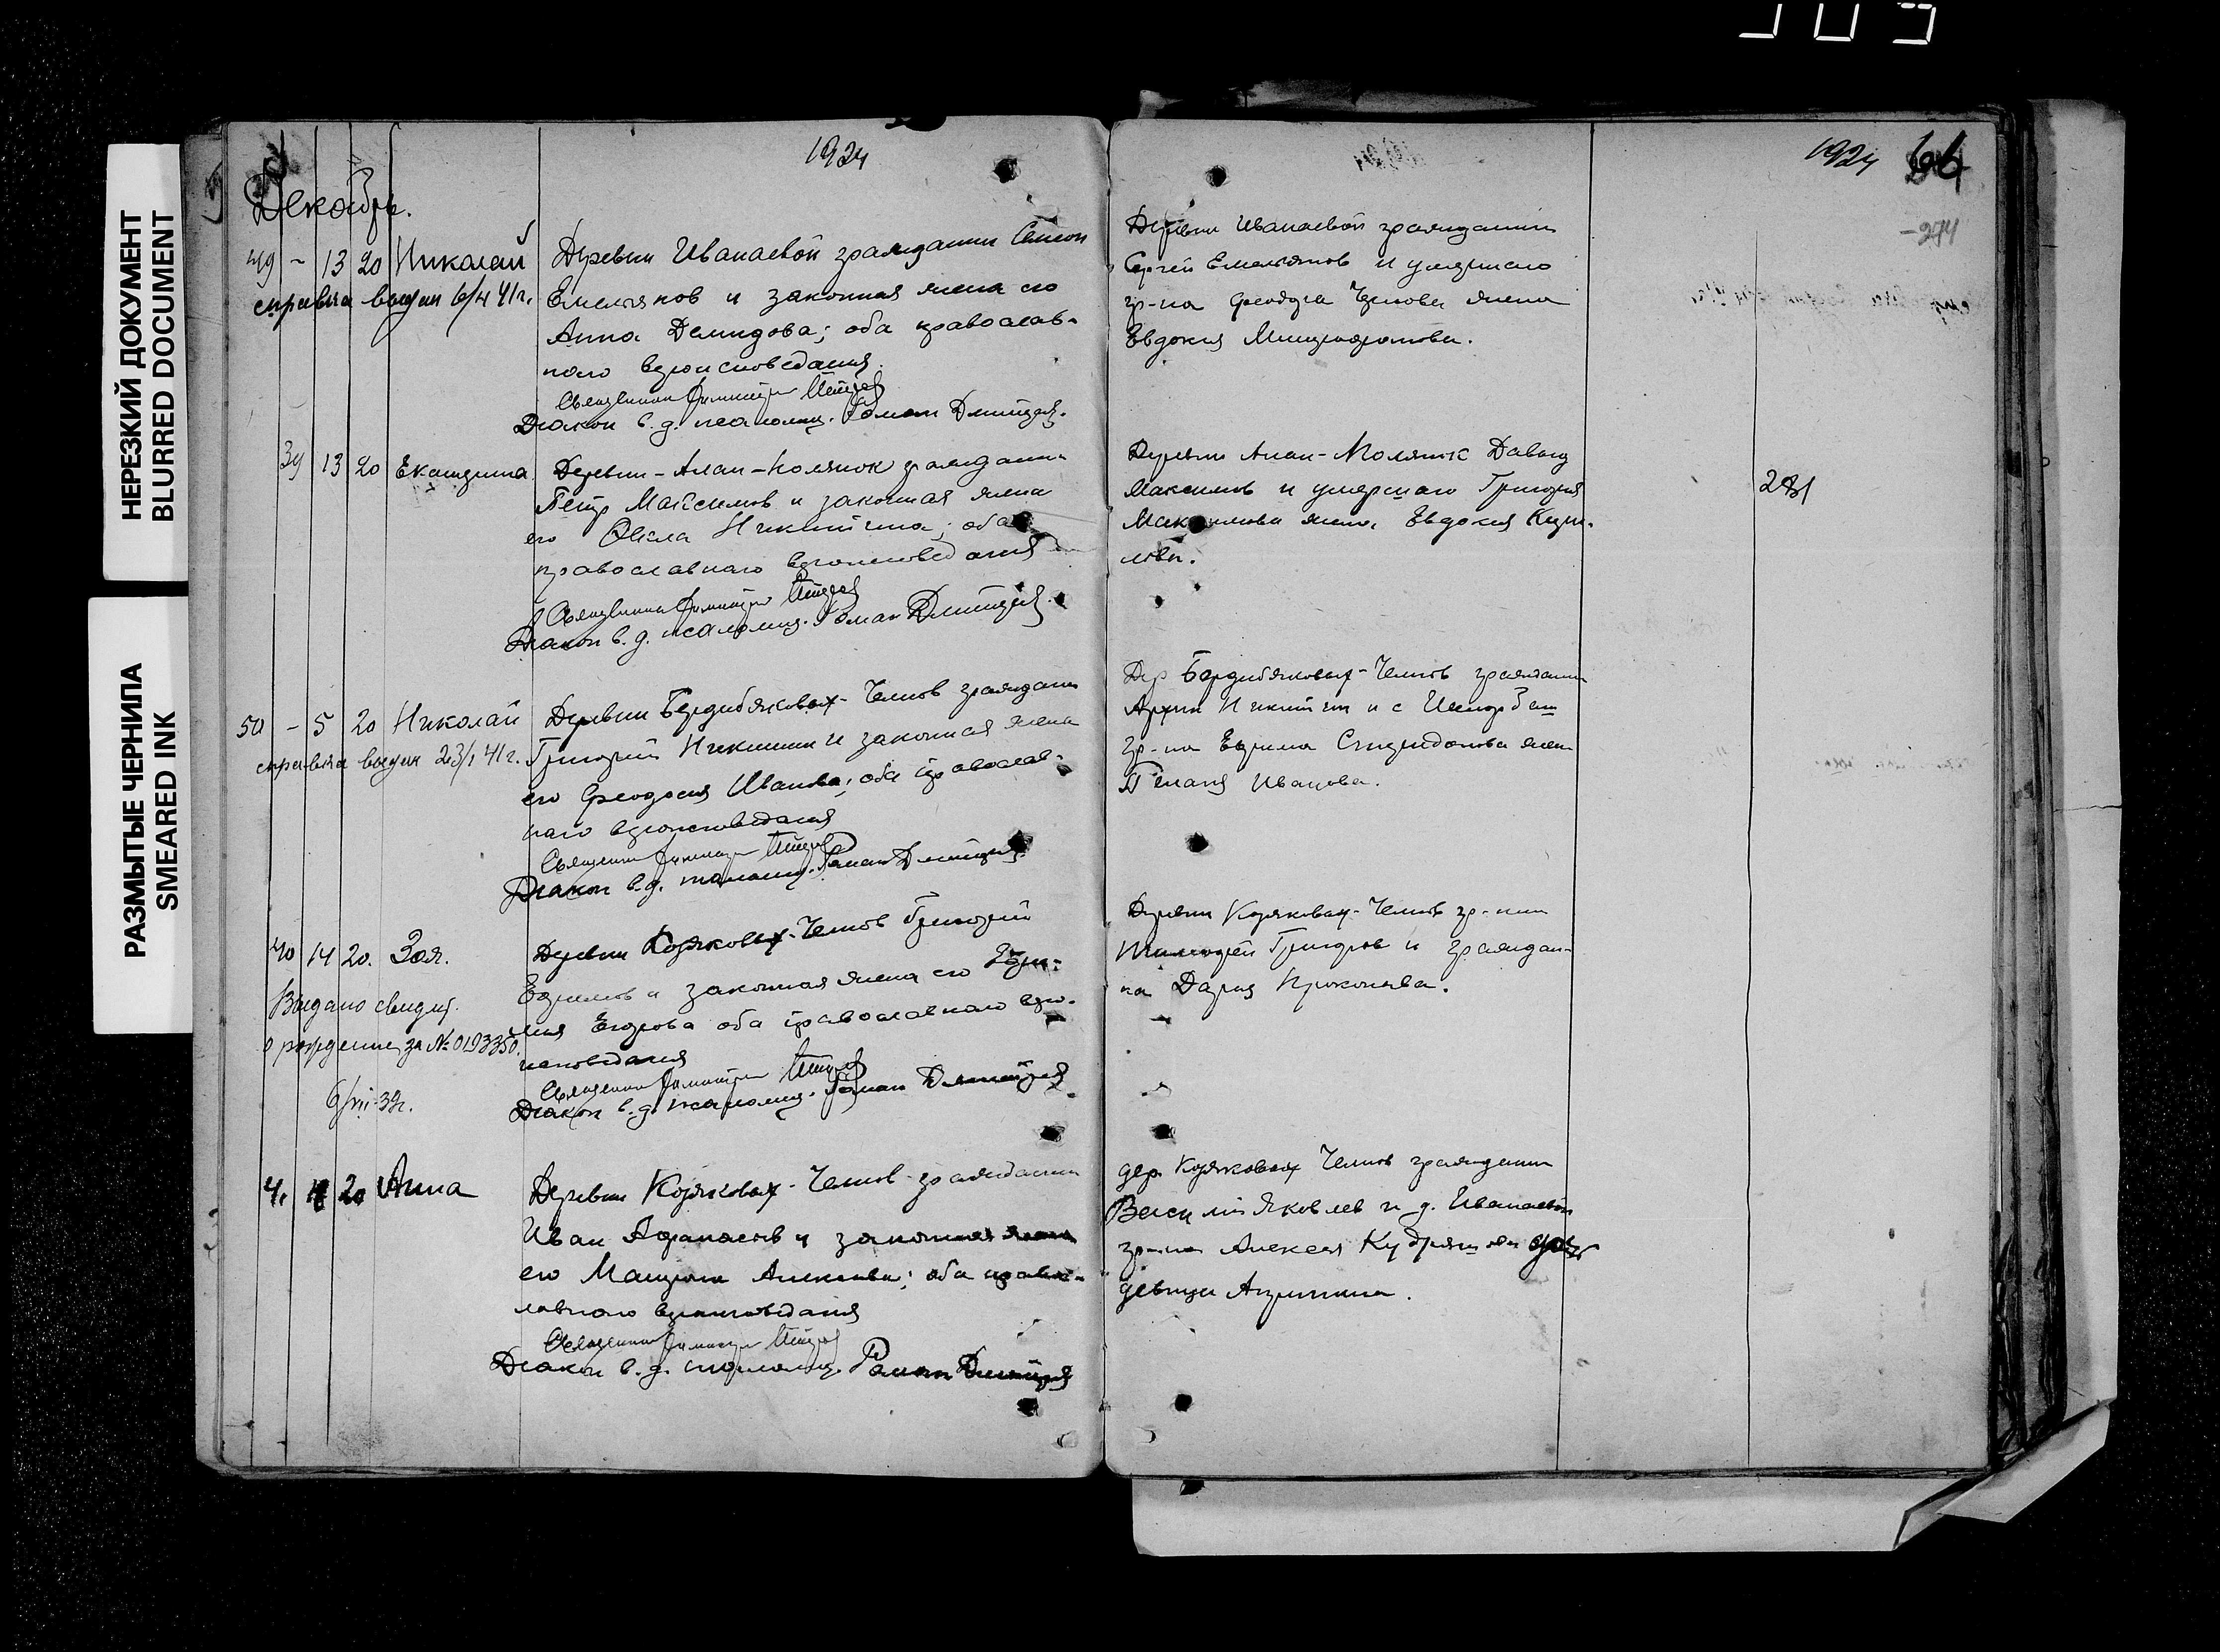 НЕРЕЗКИЙ ДОКУМЕНТ
BLURRED DOCUMENT
РАЗМЫТЫЕ ЧЕРНИЛА
SMEARED INK
1924
Декабрь.
49 - 13 20 Николай
справка выдан 6/4 41г.
Деревни Иванаевой гражданин Семион
Емельянов и законная жена его
Анна Демидова; оба православ-
наго вероисповедания.
Священник Димитрий
Диакон в. д. псаломщ. Роман Дмитриев.
39 13 20 Екатерина
Деревни-Алан-Полянок гражданин
Петр Максимов и законная жена
его Фекла Никитина; оба
православнаго вероисповедания
Священник Димитрий
Диакон в. д. псаломщ. Роман Дмитриев.
50 - 5 20 Николай
справка выдан 23/1 41г.
Деревни Бердибяковых-Челнов гражданин
Григорий Никитин и законная жена
его Феодосия Иванова; оба православ-
наго вероисповедания
Священник Димитрий
Диакон в. д. псаломщ. Роман Дмитриев.
40 14 20. Зоя.
Выдано свидет.
о рождении за № 0193350.
6/VII-39г.
Деревни Коряковых-Челнов Григорий
Ефремов и законная жена его
Егорова оба православнаго веро-
исповедания
Священник Димитрий
Диакон в. д. псаломщ. Роман Дмитриев
41 20 Анна
Деревни Коряковых-Челнов гражданин
Иван Афанасьев и законная жена
его Матрона Алексеева; оба правос-
лавного вероисповедания
Священник Димитрий
Диакон в. д. псаломщ. Роман Дмитриев
1924 66
-274
Деревни Иванаевой гражданин
Сергей Емельянов и умершего
гр-на Феодора жена
Евдокия Митрофанова.
Деревни Алан-Полянок Давыд
Максимов и умершаго Григория
Максимова жена Евдокия Кузь-
мова.
281
Дер Бердибяковых-Челнов гражданин
Архип Никитин и с
гр-на Ефрема Спиридонова жена
Пелагия Иванова.
Деревни Коряковых-Челнов гр-нин
Тимофей Григорьев и граждан-
ка Дария Прокопьева.
дер. Коряковых Челнов гражданин
Василий Яковлев и д. Иванаевой
гр-на Алексея Кудряшова дочь
девица Агрипина.